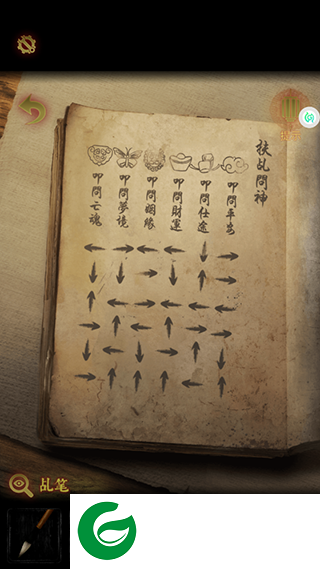 扶乩問神
叩問平安
叩問仕途
叩問財運
叩問姻緣
叩問夢境
叩問亡魂
乩笔